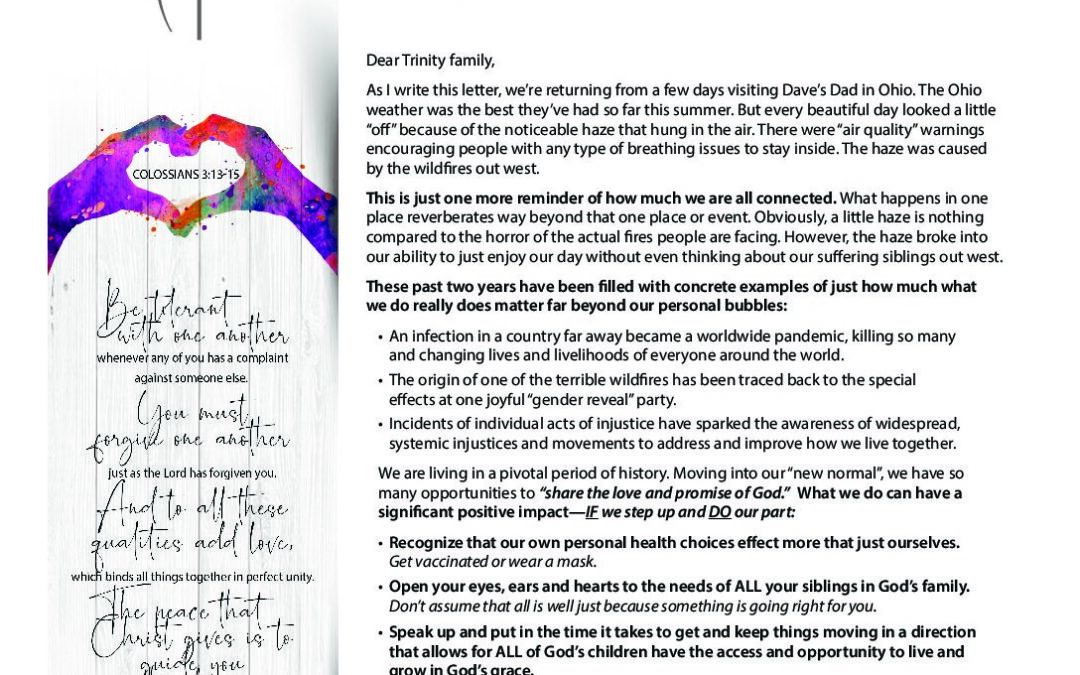 COLOSSIANS 3:13-15
Be tolerant
with one another
whenever any of you has a complaint
against someone else.
You must
forgive one another
just as the Lord has forgiven you.
And to all these
qualities add love,
which binds all things together in perfect unity.
The peace that
Christ gives is to
guide you
Dear Trinity family,
As I write this letter, we’re returning from a few days visiting Dave’s Dad in Ohio. The Ohio
weather was the best they’ve had so far this summer. But every beautiful day looked a little
“off” because of the noticeable haze that hung in the air. There were “air quality” warnings
encouraging people with any type of breathing issues to stay inside. The haze was caused
by the wildfires out west.
This is just one more reminder of how much we are all connected. What happens in one
place reverberates way beyond that one place or event. Obviously, a little haze is nothing
compared to the horror of the actual fires people are facing. However, the haze broke into
our ability to just enjoy our day without even thinking about our suffering siblings out west.
These past two years have been filled with concrete examples of just how much what
we do really does matter far beyond our personal bubbles:
• An infection in a country far away became a worldwide pandemic, killing so many
and changing lives and livelihoods of everyone around the world.
• The origin of one of the terrible wildfires has been traced back to the special
effects at one joyful “gender reveal” party.
• Incidents of individual acts of injustice have sparked the awareness of widespread,
systemic injustices and movements to address and improve how we live together.
We are living in a pivotal period of history. Moving into our “new normal”, we have so
many opportunities to “share the love and promise of God.” What we do can have a
significant positive impact—IF we step up and DO our part:
• Recognize that our own personal health choices effect more that just ourselves.
Get vaccinated or wear a mask.
• Open your eyes, ears and hearts to the needs of ALL your siblings in God’s family.
Don’t assume that all is well just because something is going right for you.
• Speak up and put in the time it takes to get and keep things moving in a direction
that allows for ALL of God’s children have the access and opportunity to live and
grow in God’s grace.